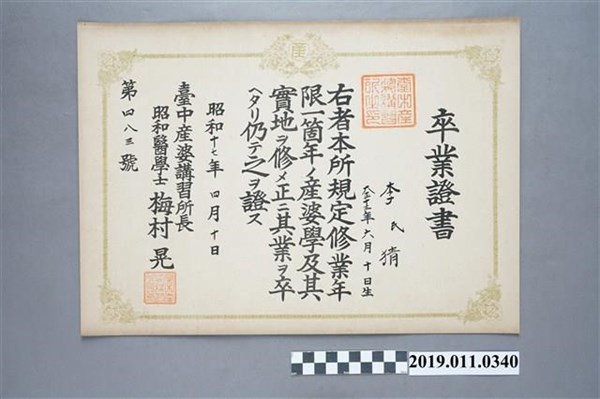 産
卒業證書
李氏猜
大正十三年六月十日生
右者本所規定修業年
限一箇年ノ産婆學及其
實地ヲ修メ正ニ其業ヲ卒
ヘタリ仍テ之ヲ證ス
昭和十七年四月十日
臺中産婆講習所長
昭和醫學士 梅村晃
第四八三號
2019.011.0340